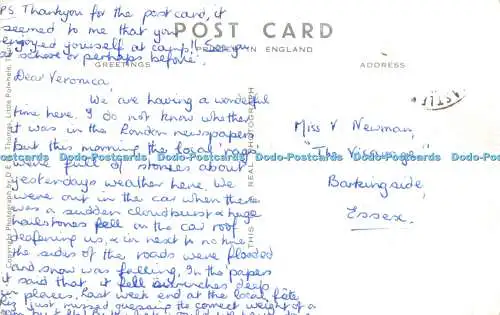 PS Thankyou for the post card, it
seemed to me that you
enjoyed yourself at camp!! See you
at school or perhaps before.
POST CARD
PRINTED IN ENGLAND
GREETINGS
ADDRESS
Dear Veronica,
We are having a wonderful
time here. I do not know whether
it was in the London newspapers
but this morning the local 'rags'
were full of stories about
yesterdays weather here. We
were out in the car when there
was a sudden cloudburst & huge
hailstones fell on the car roof
deafening us, & in next to no time
the sides of the roads were flooded
and snow was falling. In the papers
it said that it fell inches deep
in places. Last week end at the local fête
just missed guessing the correct weight of a
Miss V Newman,
"The Vicarage",
Barkingside,
Essex.
THIS IS A REAL PHOTOGRAPH
Copyright Photograph by D E J Thomas, Little Polwhele,
Dodo-Postcards Dodo-Postcards Dodo-Postcards Dodo-Postcards Dodo-Postcards